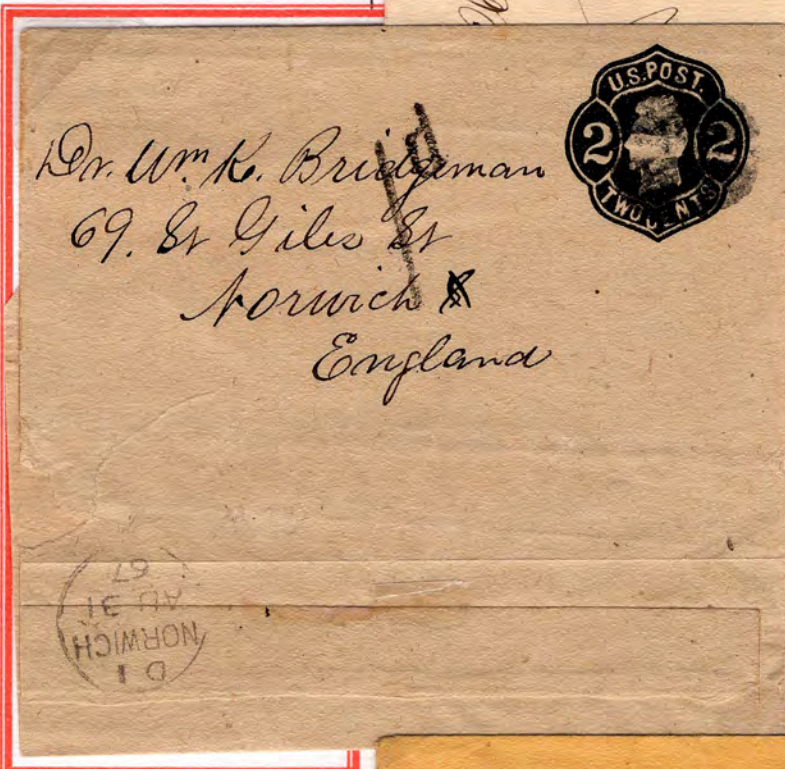 U.S. POST.
2 2
TWO CENTS
1d
Dr. Wm K. Bridgeman
69. St Giles St
Norwich
England
D 1
NORWICH
AU 31
67